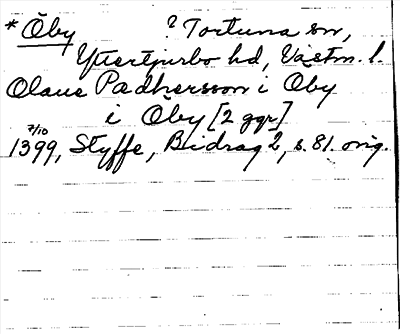 * Öby ? Tortuna sn,
Yttertjurbo hd, Västm. l.
Olaus Padhersson i Öby
i Öby [2 ggr]
7/10
1399, Styffe, Bidrag 2, s. 81. orig.